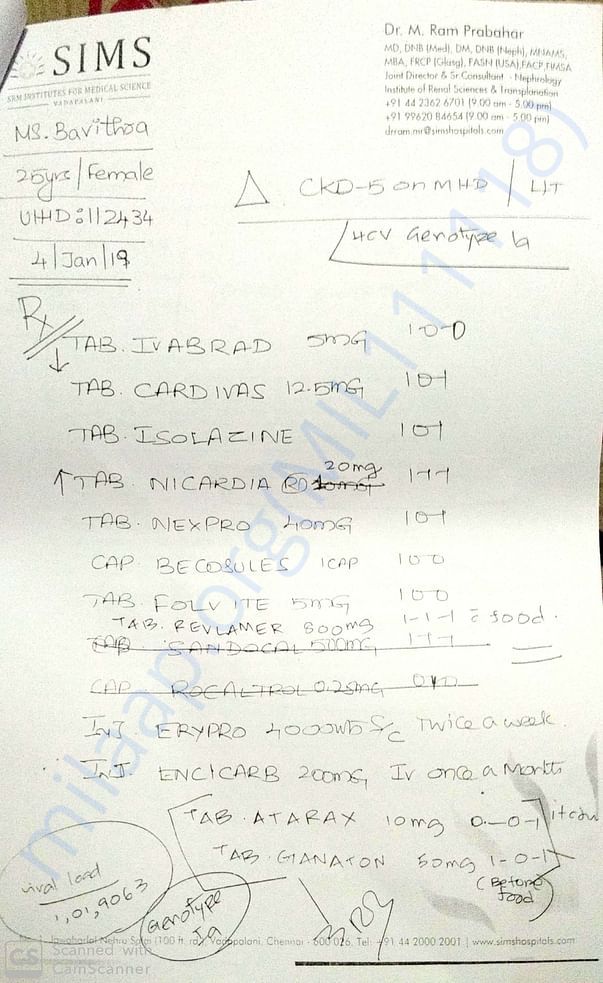 SIMS
SRM INSTITUTES FOR MEDICAL SCIENCE
VADAPALANI
Dr. M. Ram Prabahar
MD, DNB (Med), DM, DNB (Neph), MNAMS,
MBA, FRCP (Glasg), FASN (USA), FACP, FIMSA
Joint Director & Sr Consultant - Nephrology
Institute of Renal Sciences & Transplantation
+91 44 2362 6701 (9.00 am - 5.00 pm)
+91 99620 84654 (9.00 am - 5.00 pm)
drram.mr@simshospitals.com
MS. Bavithra
25yrs/Female
UHID:112434
4/Jan/19
Δ CKD-5 on MHD / LIT
HCV Genotype 1a
Rx
↓ TAB. IVABRAD 5mg 1-0-0
TAB. CARDIVAS 12.5mg 1-0-1
TAB. ISOLAZINE 1-0-1
↑ TAB. NICARDIA RD 20mg 1-1-1
TAB. NEXPRO 40mg 1-0-1
CAP BECOSULES 1CAP 1-0-0
TAB. FOLVITE 5mg 1-0-0
TAB. REVLAMER 800mg 1-1-1 c̄ food.
SANDOCAL 500mg 1-1-1
CAP ROCALTROL 0.25mg 0-1-0
INJ. ERYPRO 4000 S/C Twice a week.
INJ. ENCICARB 200mg IV once a Month
TAB. ATARAX 10mg 0-0-1
TAB. GIANATON 50mg 1-0-1
(Before food)
viral load
1,01,9063
Genotype
1a
Jawaharlal Nehru Salai (100 ft. rd), Vadapalani, Chennai - 600 026. Tel: +91 44 2000 2001 | www.simshospitals.com
CS Scanned with
CamScanner
milaap.org(MIL111118)